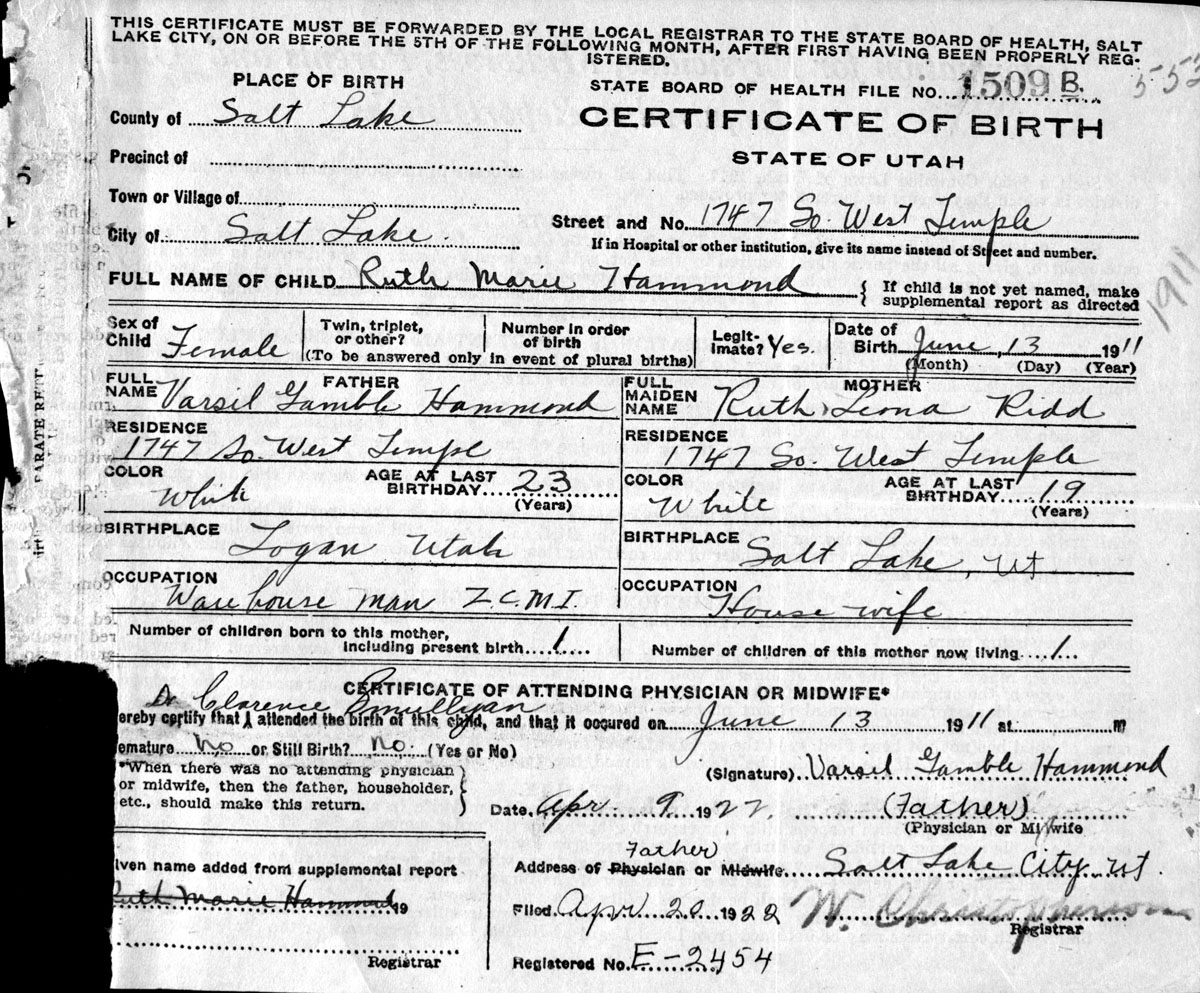 THIS CERTIFICATE MUST BE FORWARDED BY THE LOCAL REGISTRAR TO THE STATE BOARD OF HEALTH, SALT
LAKE CITY, ON OR BEFORE THE 5TH OF THE FOLLOWING MONTH, AFTER FIRST HAVING BEEN PROPERLY REG-
ISTERED.
PLACE OF BIRTH
STATE BOARD OF HEALTH FILE NO. 1509 B.
County of Salt Lake
CERTIFICATE OF BIRTH
Precinct of
STATE OF UTAH
Town or Village of
Street and No. 1747 So. West Temple
City of Salt Lake.
If in Hospital or other institution, give its name instead of Street and number.
FULL NAME OF CHILD Ruth Marie Hammond { If child is not yet named, make
supplemental report as directed
1911
Sex of Child Female
Twin, triplet, or other?
Number in order of birth
(To be answered only in event of plural births)
Legit-imate? Yes.
Date of Birth June, 13 1911
(Month) (Day) (Year)
FATHER
FULL NAME Varsil Gamble Hammond
MOTHER
FULL MAIDEN NAME Ruth Leona Ridd
RESIDENCE
1747 So. West Temple
RESIDENCE
1747 So. West Temple
COLOR White
AGE AT LAST BIRTHDAY 23
(Years)
COLOR White
AGE AT LAST BIRTHDAY 19
(Years)
BIRTHPLACE Logan Utah
BIRTHPLACE Salt Lake, Ut
OCCUPATION
Warehouse man Z.C.M.I.
OCCUPATION
House wife
Number of children born to this mother,
including present birth 1
Number of children of this mother now living 1
CERTIFICATE OF ATTENDING PHYSICIAN OR MIDWIFE*
Dr Clarence
ereby certify that I attended the birth of this child, and that it occured on June 13 1911 at m
emature No or Still Birth? No. (Yes or No)
*When there was no attending physician
or midwife, then the father, householder,
etc., should make this return.
(Signature) Varsil Gamble Hammond
Date Apr. 9 1922
(Father)
(Physician or Midwife
Father
Address of Physician or Midwife Salt Lake City Ut.
iven name added from supplemental report
Ruth Marie Hammond 19
Registrar
Filed Apr 20 1922
W. Christopherson
Registrar
Registered No. E-2454